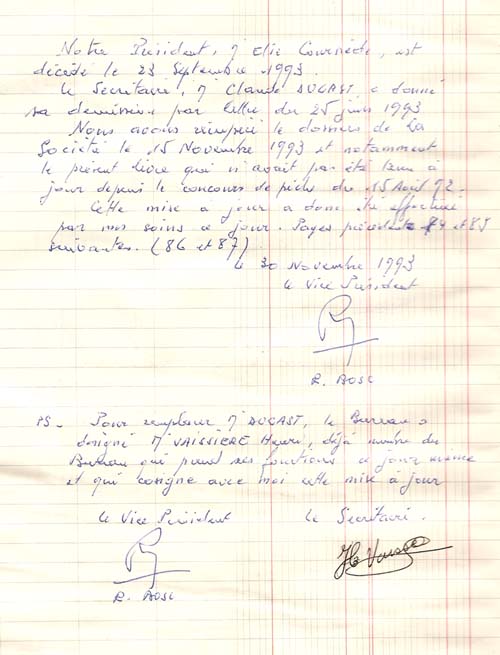 Notre Président, M Elie Cournède, est
décédé le 23 Septembre 1993.
Le Secrétaire, M Claude DUCAST, a donné
sa démission par lettre du 25 juin 1993
Nous avons récupéré le dossiers de la
Société le 15 Novembre 1993 et notamment
le présent livre qui n'avait pas été tenu à
jour depuis le concours de pêche du 15 Août 92.
Cette mise à jour a donc été effectuée
par nos soins à jour. Pages précédentes 84 et 85
suivantes. (86 et 87).
le 30 Novembre 1993
Le Vice Président
R. BOSC
PS - Pour remplacer M DUCAST, le Bureau a
désigné M VAISSIERE Henri, déjà membre du
Bureau qui prend ses fonctions à jour
et qui cosigne avec moi cette mise à jour
Le Vice Président Le Secrétaire.
R. BOSC